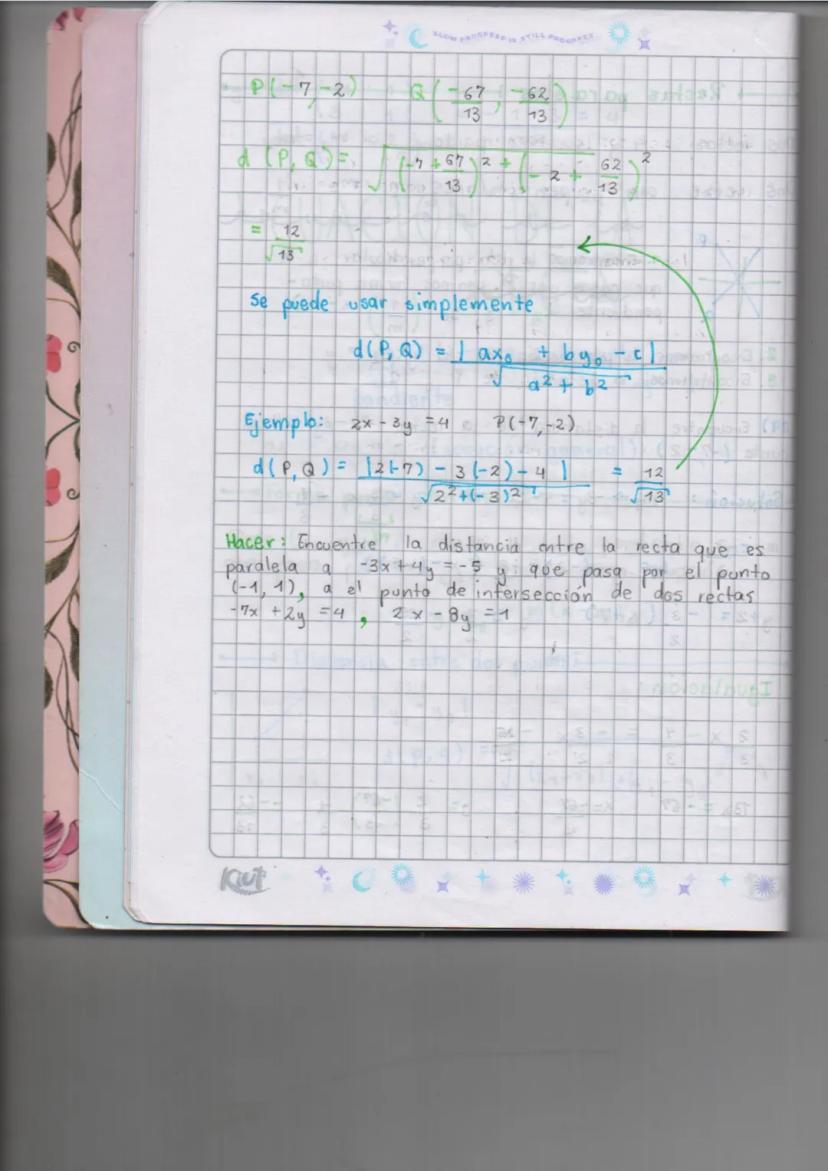 SLOW PROGRESS IS STILL PROGRESS
P(-7,-2) Q(-67/13, -62/13)
d(P,Q) = √((-7 + 67/13)² + (-2 + 62/13)²)
= 12/√13
Se puede usar simplemente
d(P,Q) = |ax₀ + by₀ - c| / √(a² + b²)
Ejemplo: 2x - 3y = 4 P(-7,-2)
d(P,Q) = |2(-7) - 3(-2) - 4| / √(2²+(-3)²) = 12/√13
Hacer: Encuentre la distancia entre la recta que es
paralela a -3x+4y=-5 y que pasa por el punto
(-1, 1), a el punto de intersección de dos rectas
-7x+2y=4, 2x-8y=1
Kiut